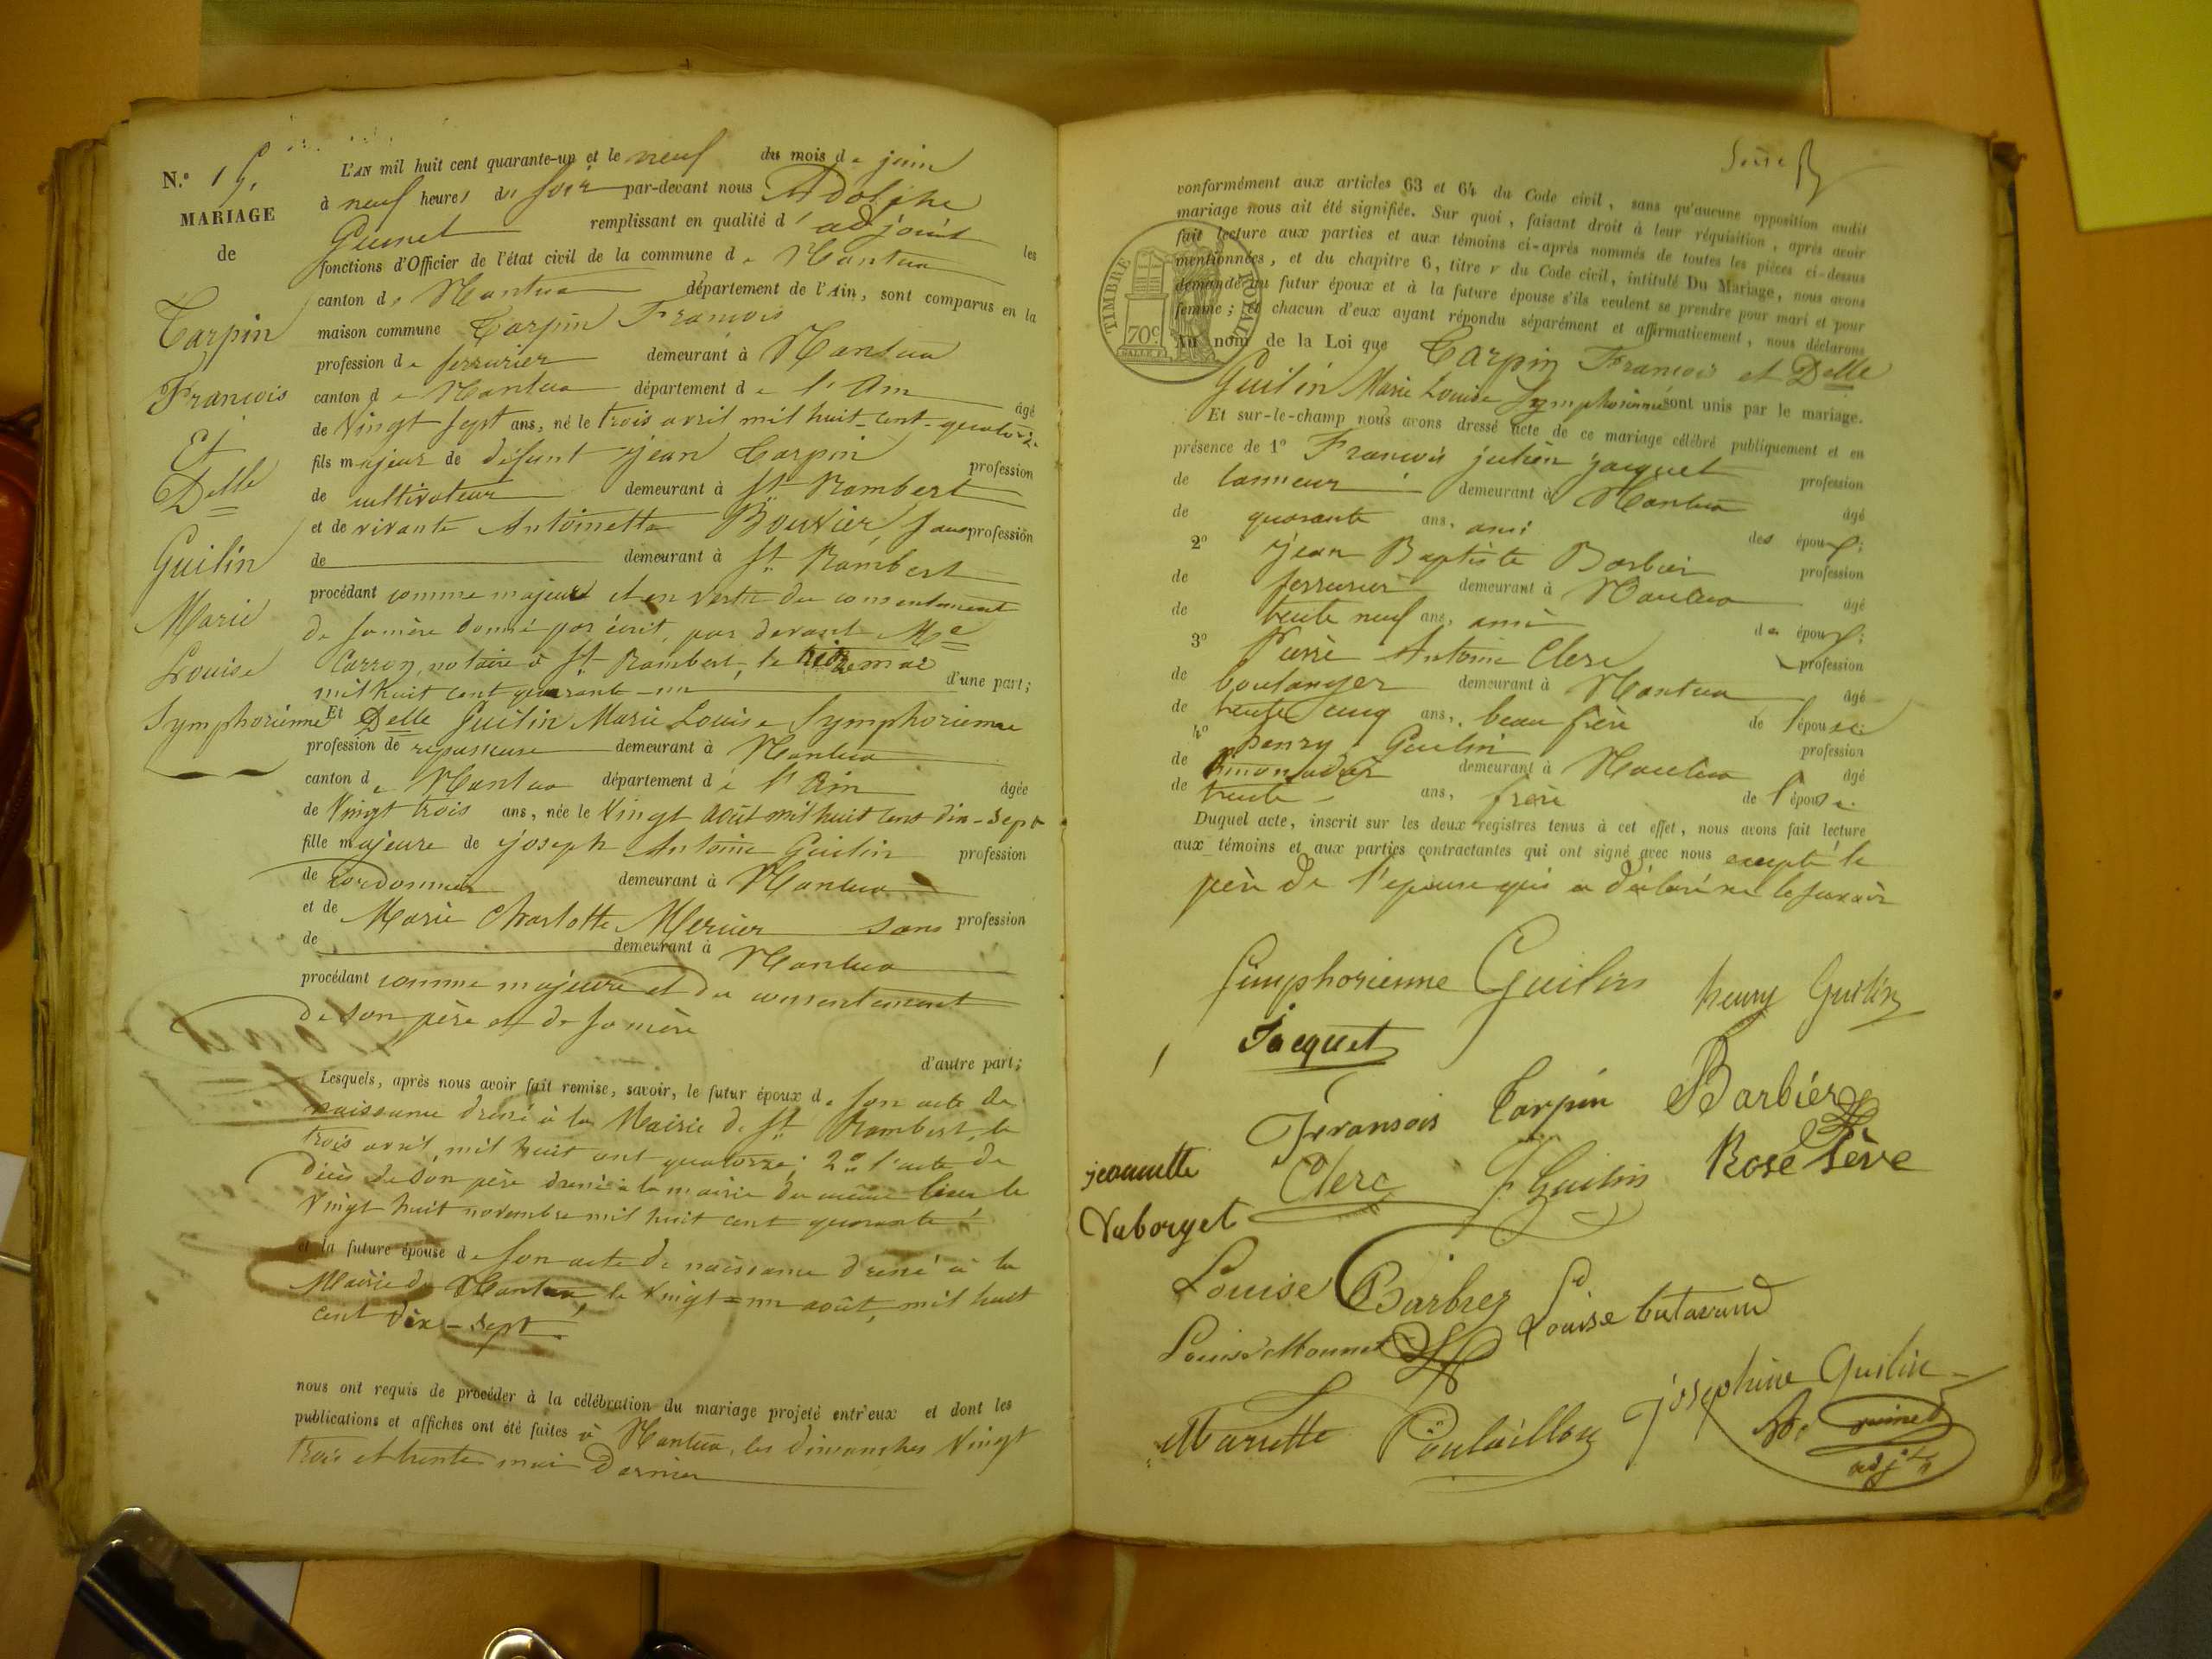 N.º 15.
MARIAGE
de
Carpin
Francois
Et
Delle
Guilin
Marie
Louise
Symphorienne
L'AN mil huit cent quarante-un et le neuf du mois de juin
à neuf heures du soir par-devant nous Adolphe
Guinet remplissant en qualité d'adjoint les
fonctions d'Officier de l'état civil de la commune de Nantua
canton de Nantua département de l'Ain, sont comparus en la
maison commune Carpin Francois
profession de serrurier demeurant à Nantua
canton de Nantua département de l'Ain âgé
de Vingt sept ans, né le trois avril mil huit-cent-quatorze
fils majeur de défunt jean Carpin profession
de cultivateur demeurant à St Rambert
et de vivante Antoinette Bouvier, sans profession
de demeurant à St Rambert
procédant comme majeur et en vertu du consentement
de sa mère donné par écrit, par devant Me
Carron, notaire à St Rambert, le mai
mil huit cent quarante-un d'une part;
Et Delle Guilin Marie Louise Symphorienne
profession de repasseuse demeurant à Nantua
canton de Nantua département de l'Ain âgée
de Vingt trois ans, née le Vingt août mil huit cent dix-sept
fille majeure de joseph Antoine Guilin profession
de Cordonnier demeurant à Nantua
et de Marie Charlotte Mercier sans profession
de demeurant à Nantua
procédant comme majeure et du consentement
de son père et de sa mère
d'autre part;
Lesquels, après nous avoir fait remise, savoir, le futur époux de son acte de
naissance dressé à la Mairie de St Rambert, le
trois avril, mil huit cent quatorze; 2º l'acte de
décès de son père dressé à la mairie du même lieu le
Vingt huit novembre mil huit cent quarante;
et la future épouse de son acte de naissance dressé à la
Mairie de Nantua le Vingt-un août, mil huit
cent dix-sept.
nous ont requis de procéder à la célébration du mariage projeté entr'eux et dont les
publications et affiches ont été faites à Nantua, les dimanches Vingt
trois et trente mai dernier
conformément aux articles 63 et 64 du Code civil, sans qu'aucune opposition audit
mariage nous ait été signifiée. Sur quoi, faisant droit à leur réquisition, après avoir
fait lecture aux parties et aux témoins ci-après nommés de toutes les pièces ci-dessus
mentionnées, et du chapitre 6, titre v du Code civil, intitulé Du Mariage, nous avons
demandé au futur époux et à la future épouse s'ils veulent se prendre pour mari et pour
femme; et chacun d'eux ayant répondu séparément et affirmativement, nous déclarons
Au nom de la Loi que Carpin Francois et Delle
TIMBRE ROYAL
70c.
Guilin Marie Louise Symphorienne sont unis par le mariage.
Et sur-le-champ nous avons dressé acte de ce mariage célébré publiquement et en
présence de 1º Francois julien jacquet profession
de tanneur demeurant à Nantua âgé
de quarante ans, ami des époux;
2º jean Baptiste Barbier profession
de serrurier demeurant à Nantua âgé
de trente neuf ans, ami de époux;
3º Pierre Antoine Clerc profession
de boulanger demeurant à Nantua âgé
de trente cinq ans, beau frère de l'épouse
4º henry Guilin profession
de demeurant à Nantua âgé
de trente ans, frère de l'épouse.
Duquel acte, inscrit sur les deux registres tenus à cet effet, nous avons fait lecture
aux témoins et aux parties contractantes qui ont signé avec nous excepté le
père de l'épouse qui a déclaré ne le savoir
Simphorienne Guilin henry Guilin
Jacquet
Fransois Carpin Barbier
jeannette Clerc J Guilin Rose Sève
Vuborget
Louise Barbier Louise butavand
Louise Monnet
josephine Guilin
Mariette Poulaillon
Ad. Guinet
adjt